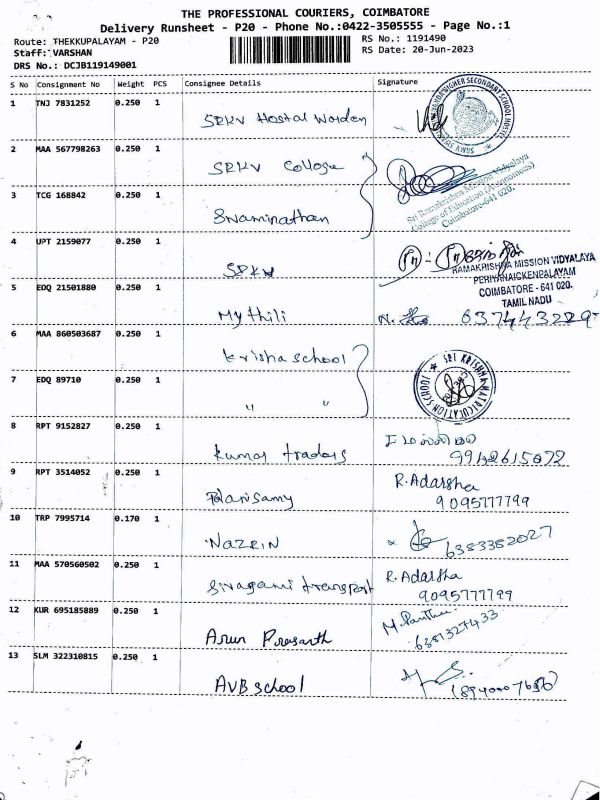 THE PROFESSIONAL COURIERS, COIMBATORE
Delivery Runsheet - P20 - Phone No.:0422-3505555 - Page No.:1
Route: THEKKUPALAYAM - P20
RS No.: 1191490
Staff: VARSHAN
RS Date: 20-Jun-2023
DRS No.: DCJB119149001
S No Consignment No Weight PCS Consignee Details Signature
1 TNJ 7831252 0.250 1
SRKV Hostal Warden
2 MAA 567798263 0.250 1
SRKV College
Sri Ramakrishna Mission Vidyalaya
College of Education (Autonomous)
Coimbatore-641 020.
3 TCG 168842 0.250 1
Swaminathan
4 UPT 2159077 0.250 1
SRKV
RAMAKRISHNA MISSION VIDYALAYA
PERIYANAICKENPALAYAM
COIMBATORE - 641 020.
TAMIL NADU
5 EDQ 21501880 0.250 1
Mythili
6 MAA 860503687 0.250 1
krisha school
SRI KRISHNA MATRICULATION SCHOOL
7 EDQ 89710 0.250 1
" "
8 RPT 9152827 0.250 1
kumar traders
9 RPT 3514052 0.250 1
Palanisamy
R. Adarsha
9095777799
10 TRP 7995714 0.170 1
NAZRIN
6383382027
11 MAA 570560502 0.250 1
Sivagami transport
R. Adarsha
9095777799
12 KUR 695185889 0.250 1
Arun Prasanth
6381327433
13 SLM 322310815 0.250 1
AVB school